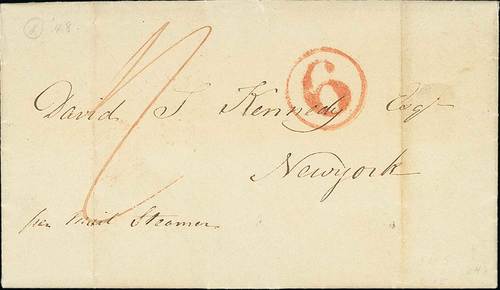 '48
6
David T Kennedy Esqr
Newyork
per mail Steamer